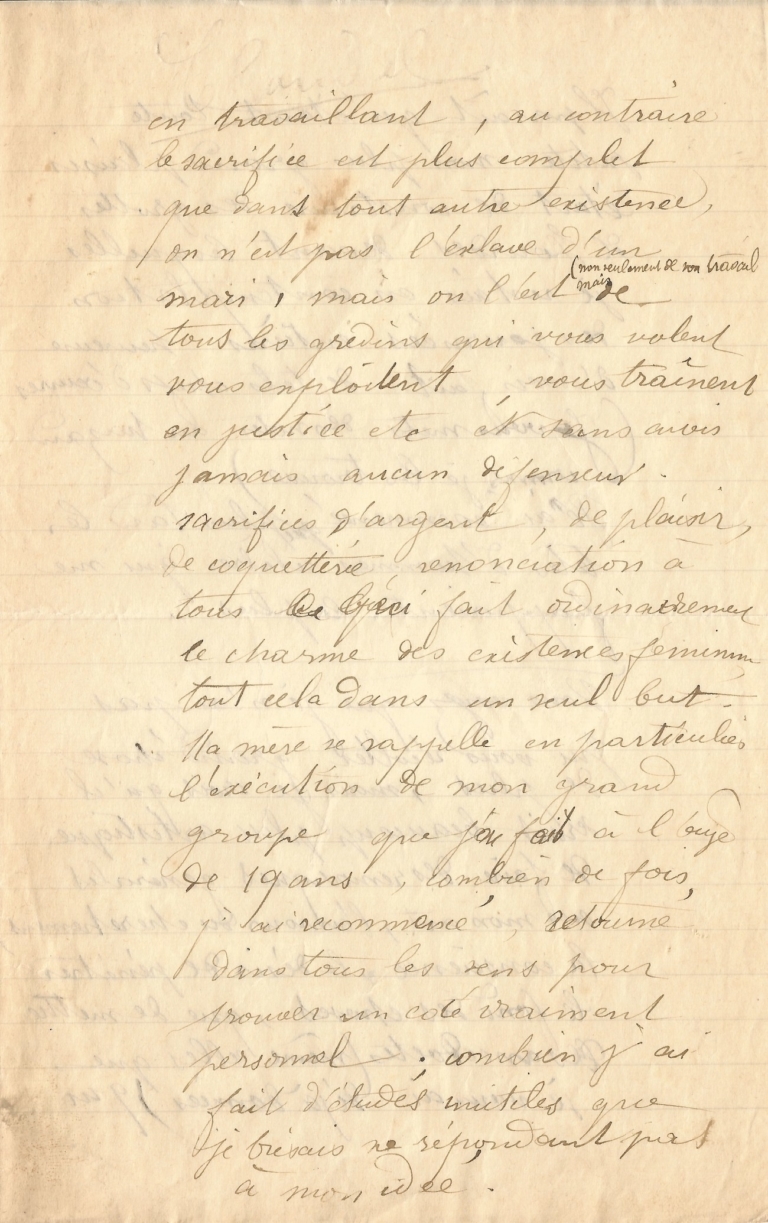 en travaillant, au contraire
le sacrifice est plus complet
que dans tout autre existence,
on n'est pas l'exlave d'un
(non seulement de son travail
mais
mari, mais on l'est de
tous les gredins qui vous volent
vous exploitent, vous traînent
en justice etc et sans avoir
jamais aucun défenseur.
sacrifices d'argent, de plaisir,
de coquetterie, renonciation à
tous fait ordinairement
le charme des existences feminines
tout cela dans un seul but.
Ma mère se rappelle en particulier
l'exécution de mon grand
groupe que j'ai fait à l'age
de 19 ans, combien de fois,
j'ai recommencé, retourné
dans tous les sens pour
trouver un coté vraiment
personnel; combien j'ai
fait d'études inutiles que
je brisais ne répondant pas
à mon idée.